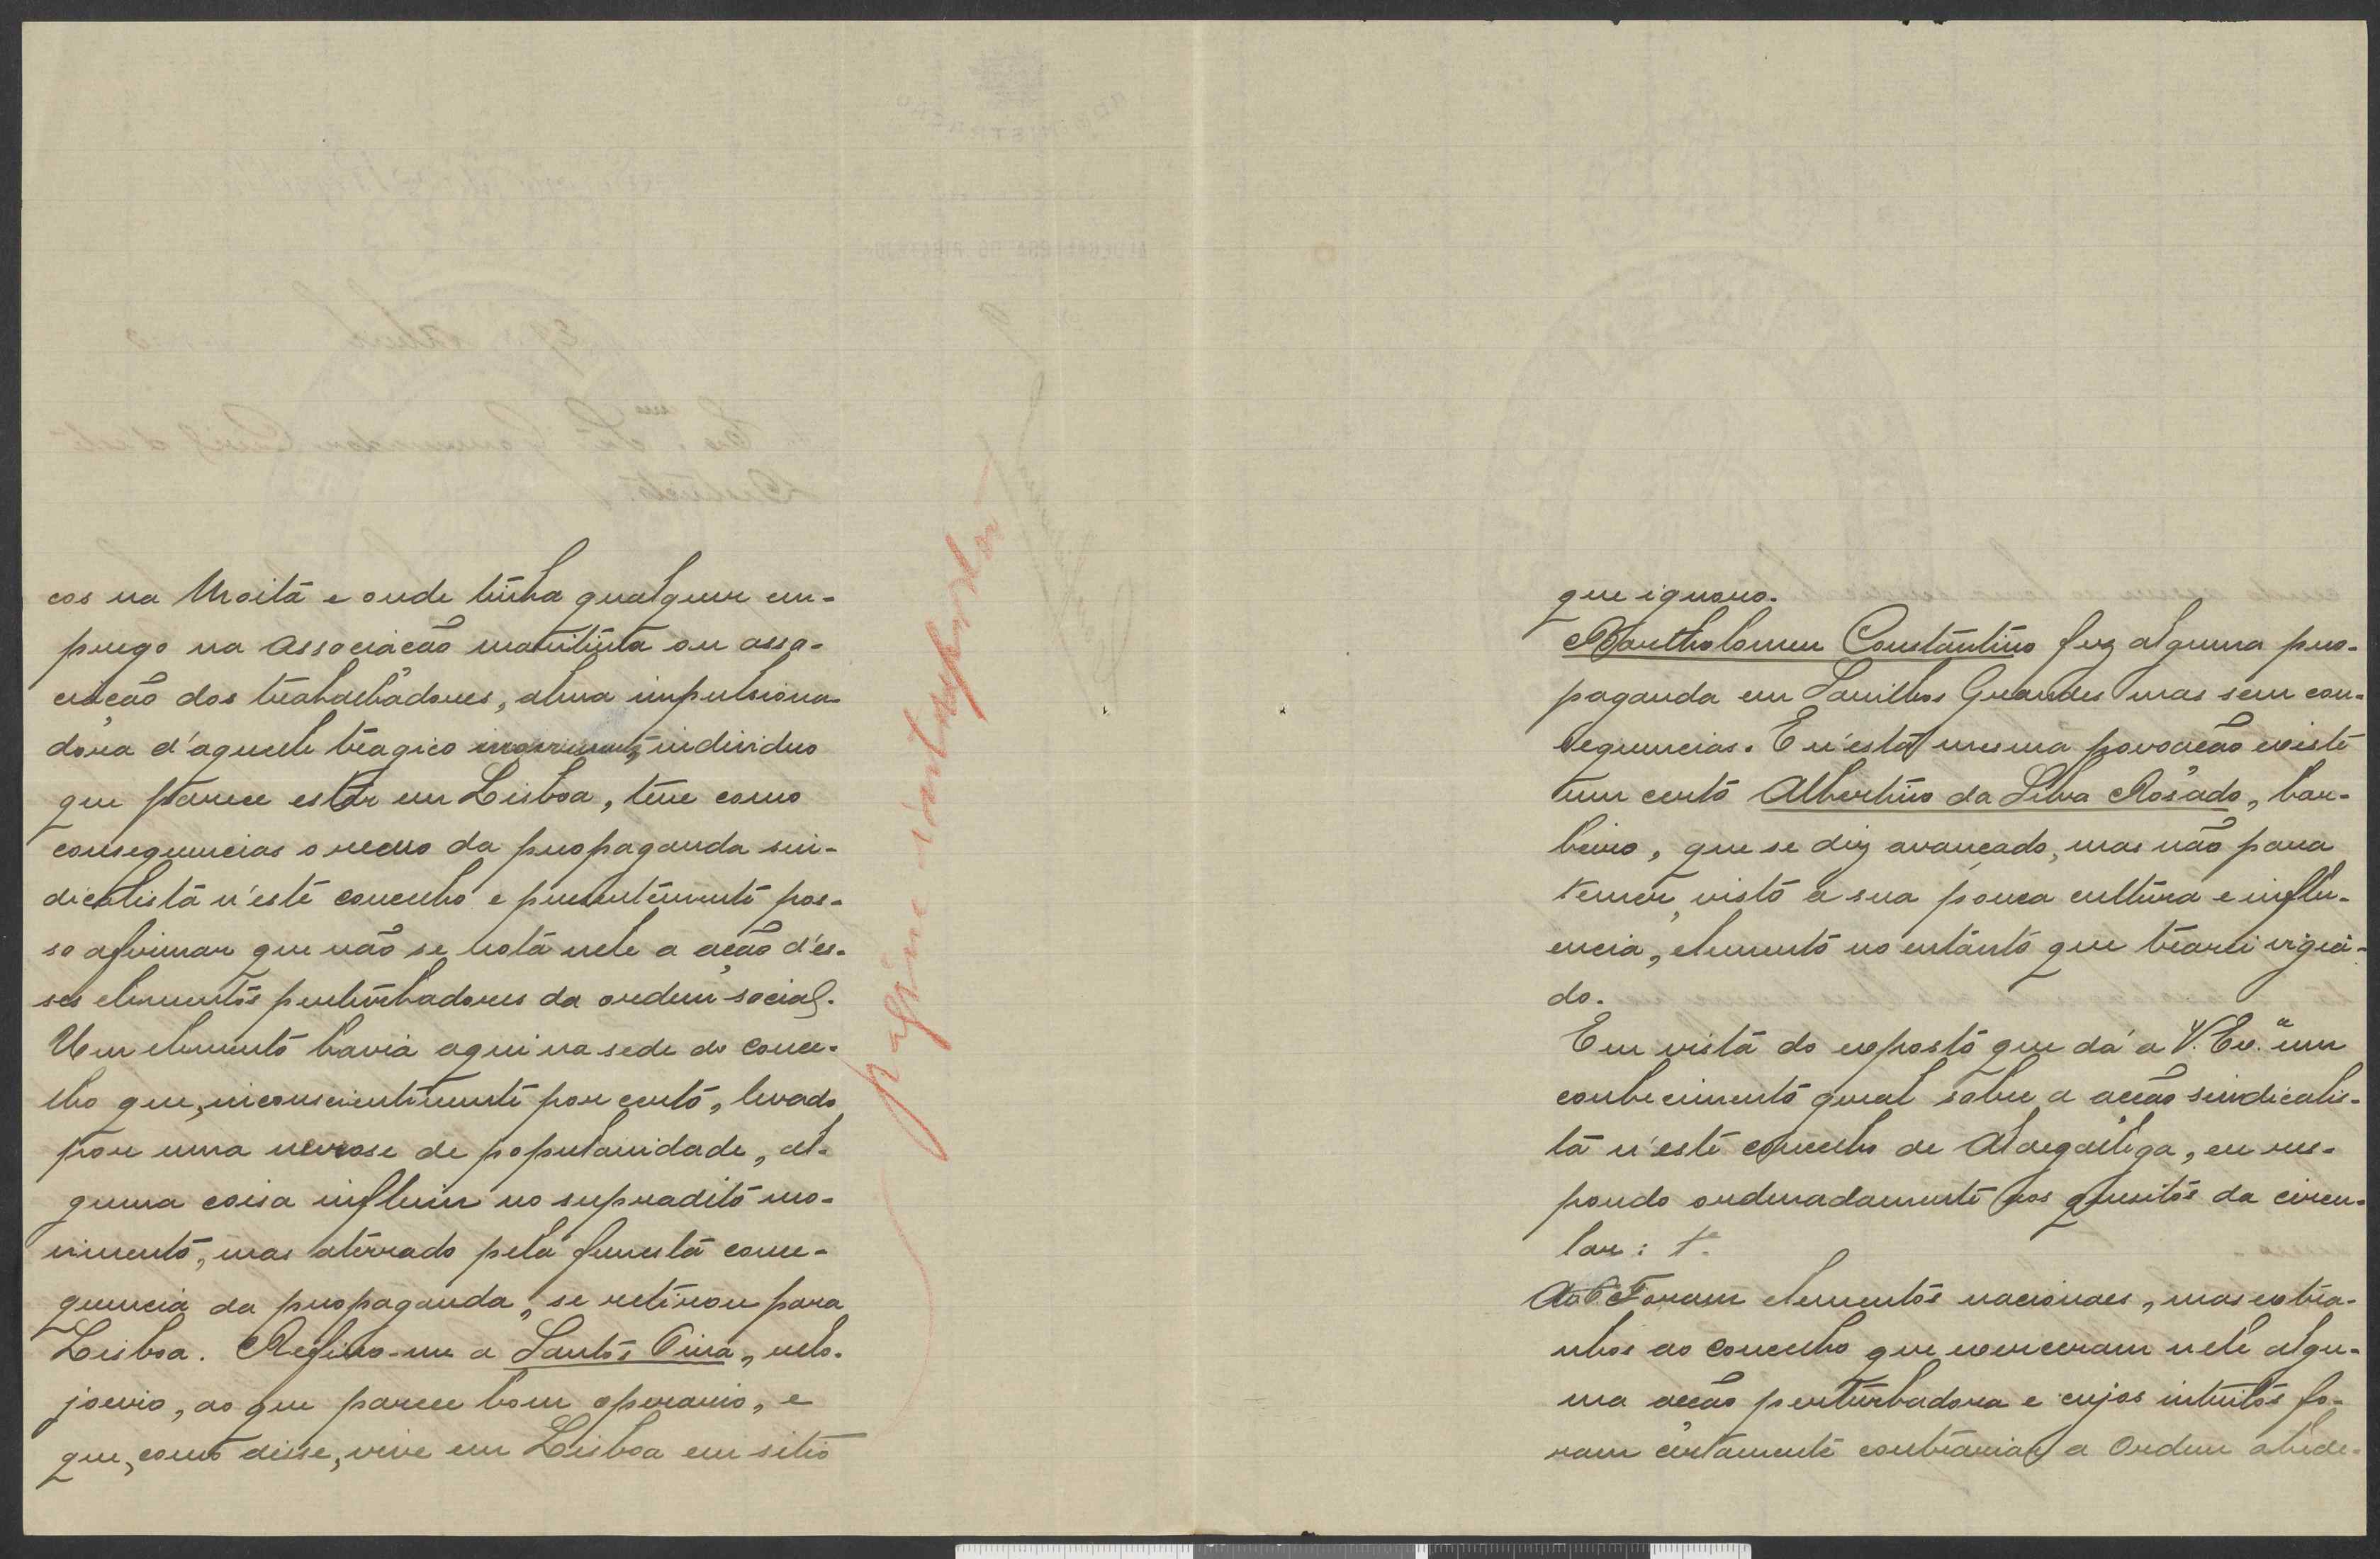 cos na Moita e onde tinha qualquer em-
prego na Associação maritima ou asso-
ciação dos trabalhadores, alma impulsiona-
dora d'aquele tragico individuo
que parece estar em Lisboa, teve como
consequencias o recuo da propaganda sin-
dicalista n'este concelho e presentemente pos-
so afirmar que não se nota nele a ação d'es-
ses elementos perturbadores da ordem social.
Um elemento havia aqui na sede do conce-
lho que, inconscientemente por certo, levado
por uma nevrose de popularidade, al-
guma coisa influiu no supradito mo-
vimento, mas aterrado pela funesta conse-
quencia da propaganda, se retirou para
Lisboa. Refiro-me a Santos Pina, relo-
joeiro, ao que parece bom operario, e
que, como disse, vive em Lisboa em sitio
que ignoro.
Bartholomeu Constantino fez alguma pro-
paganda em Sarilhos Grandes mas sem con-
sequencias. E n'esta mesma povoação existe
um certo Albertino da Silva Rosado, bar-
beiro, que se diz avançado, mas não para
temer, visto a sua pouca cultura e influ-
encia, elemento no entanto que trarei vigia-
do.
Em vista do exposto que dá a V. Ex.ª um
conhecimento geral sobre a acção sindicalis-
ta n'este concelho de Aldegallega, eu res-
pondo ordenadamente aos quesitos da circu-
lar:
Foram elementos nacionaes, mas extra-
nhos ao concelho que exerceram nele algu-
ma acção perturbadora e cujos intuitos fo-
ram certamente contrariar a Ordem obede-